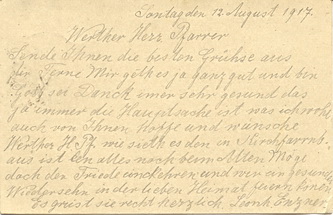 Sontag den 12. August 1917.
Werther Herr Pfarrer
Sende Ihnen die besten Grühse aus
der Ferne Mir geht es ja ganz gut und bin
Gott sei Danck imer sehr gesund das
Ja immer die Hauptsache ist was ich wohl
auch von Ihnen Hoffe und wünsche
Werther H. Pf. wie sieht es den in Kirchfarrnb.
aus ist den alles noch beim Alten Möge
doch der Friede einckehren und wir ein gesundes
Widersehn in der lieben Heimat feiern können
Es grüst sie recht herzlich Leonh.